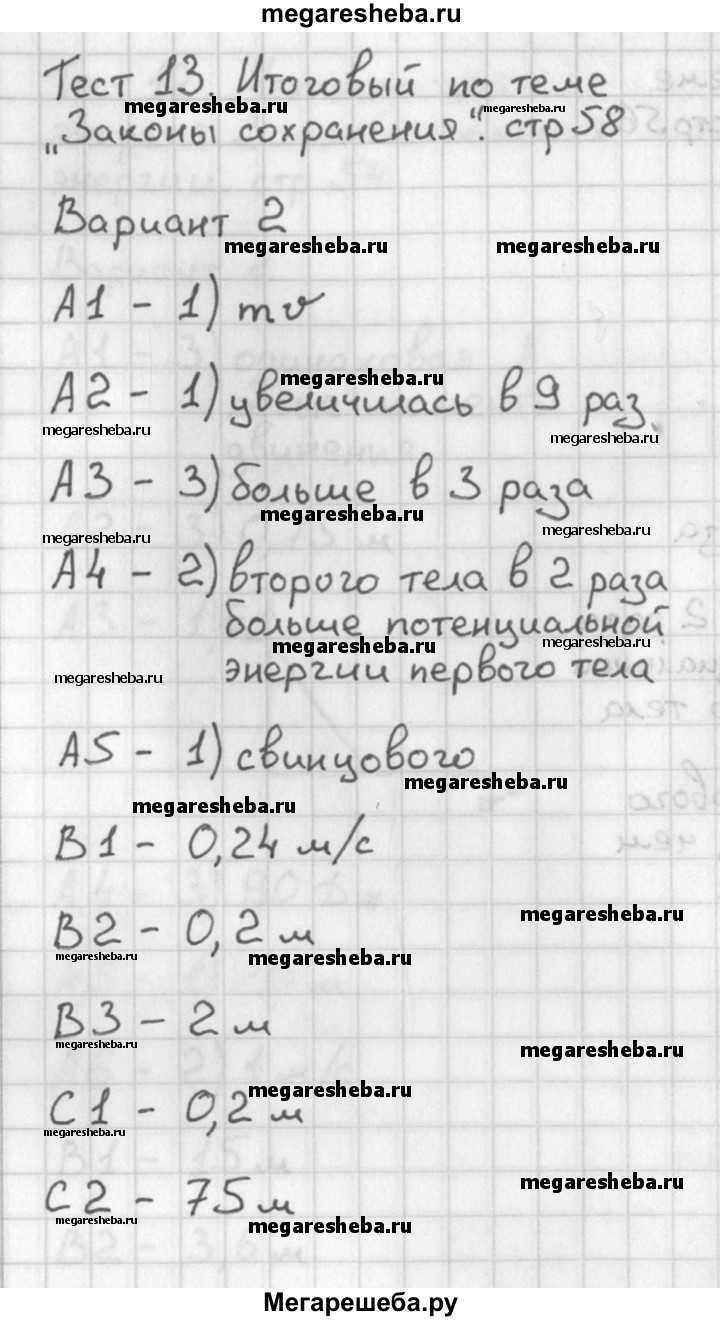 megaresheba.ru
Тест 13. Итоговый по теме
megaresheba.ru megaresheba.ru
„Законы сохранения“. стр 58
Вариант 2
megaresheba.ru megaresheba.ru
А1 - 1) mv
megaresheba.ru
А2 - 1) увеличилась в 9 раз.
megaresheba.ru megaresheba.ru
А3 - 3) больше в 3 раза
megaresheba.ru
megaresheba.ru megaresheba.ru
А4 - 2) второго тела в 2 раза
больше потенциальной
megaresheba.ru megaresheba.ru
энергии первого тела
megaresheba.ru
А5 - 1) свинцового
megaresheba.ru
megaresheba.ru
В1 - 0,24 м/с
megaresheba.ru
В2 - 0,2 м
megaresheba.ru megaresheba.ru
В3 - 2 м
megaresheba.ru megaresheba.ru
megaresheba.ru
С1 - 0,2 м
megaresheba.ru
megaresheba.ru
С2 - 75 м
megaresheba.ru megaresheba.ru
Мегарешеба.ру